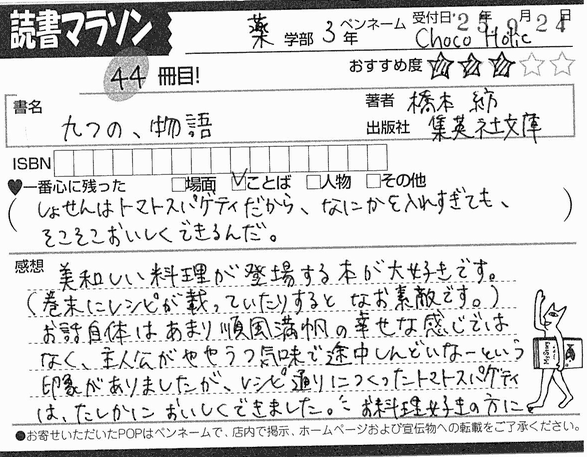 読書マラソン
薬 学部 3 年 ペンネーム Choco Holic 受付日'25年9月24日
44 冊目! おすすめ度 ★★★☆☆
書名 九つの、物語
著者 橋本 紡
出版社 集英社文庫
ISBN
♥一番心に残った □場面 ☑ことば □人物 □その他
(しょせんはトマトスパゲティだから、なにかを入れすぎても、
そこそこおいしくできるんだ。)
感想 美味しい料理が登場する本が大好きです。
(巻末にレシピが載っていたりするとなお素敵です。)
お話自体はあまり順風満帆の幸せな感じでは
なく、主人公がややうつ気味で途中しんどいなーという
印象がありましたが、レシピ通りにつくったトマトスパゲティ
は、たしかにおいしくできました。お料理好きの方に。
●お寄せいただいたPOPはペンネームで、店内で掲示、ホームページおよび宣伝物への転載をご了承ください。